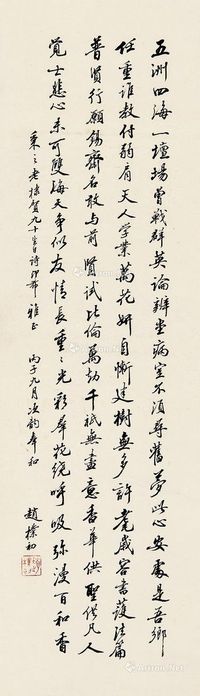 五洲四海一壇場曾戰群英論辯堂病室不須尋舊夢此心安處是吾鄉
任重誰教付弱肩天人學業萬花妍自慚建樹無多許耄歲容書護法篇
普賢行願錫齋名敢與前賢試比倫萬劫千祇無盡意香華供聖供凡人
覺士悲心未可雙海天爭似友情長重〻光彩花絕呼吸彌漫百和香
老惠賀九十日詩 雅正 丙子九月次韵奉和 趙樸初